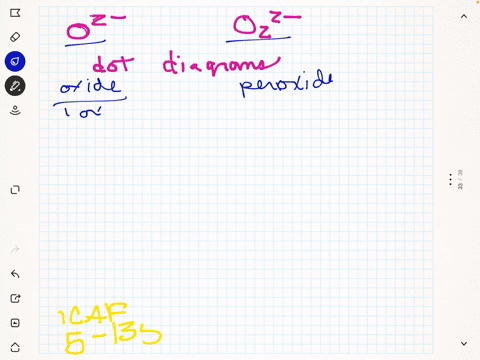 O²⁻ O₂²⁻
dot diagrams
oxide peroxide
1 ox
ICAF
5-135